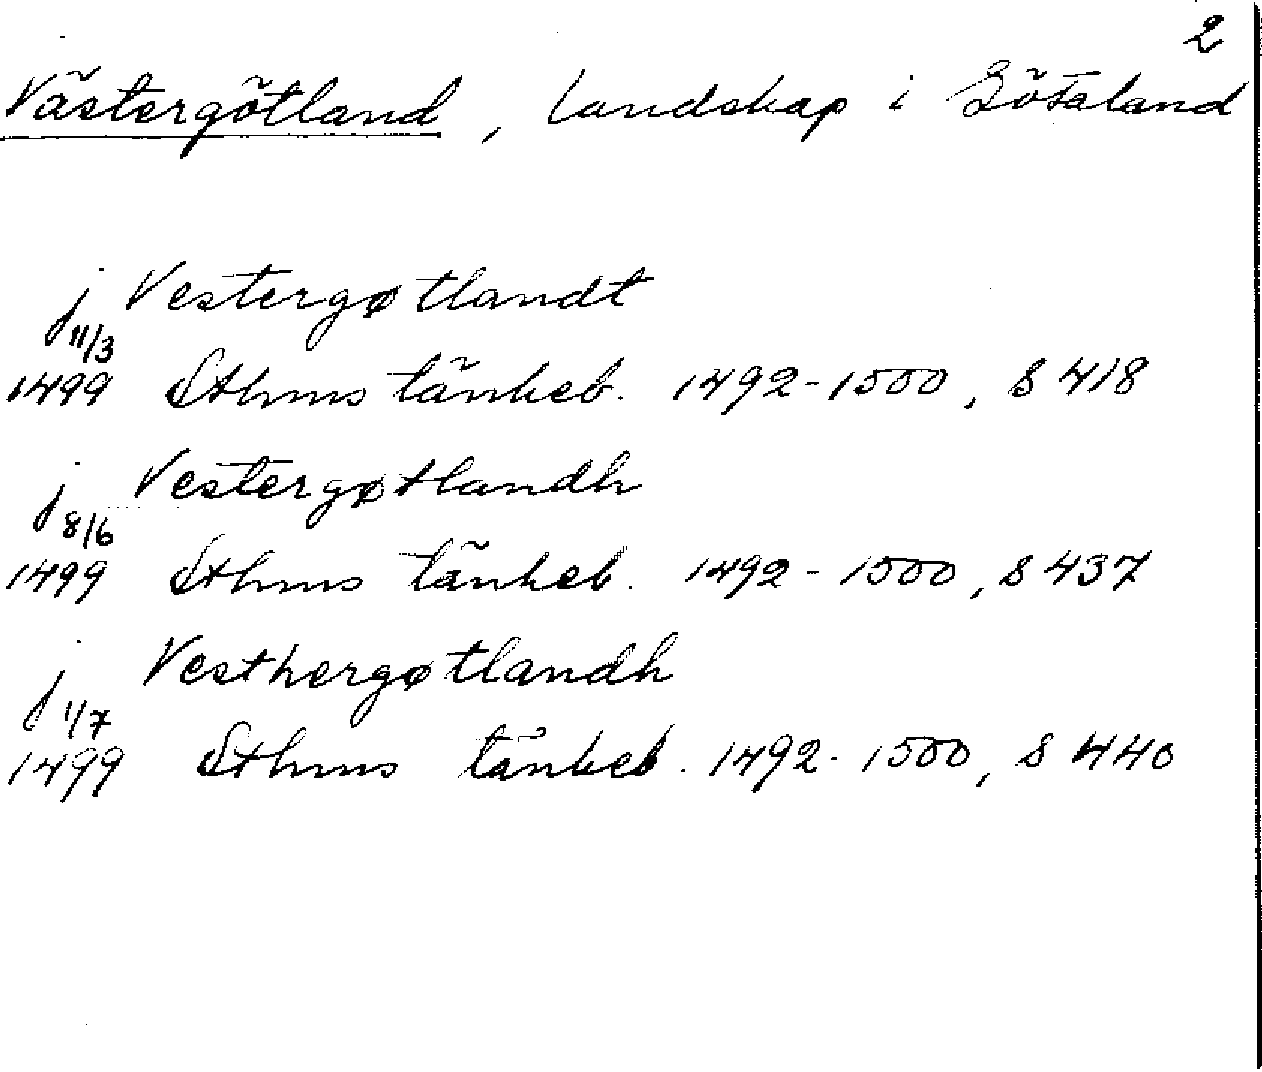 2
Västergötland, landskap i Götaland
j Vestergøtlandt
11/3
1499 Sthms tänkeb. 1492-1500, s 418
j Vestergøtlandh
8/6
1499 Sthms tänkeb. 1492-1500, s 437
j Vesthergøtlandh
1/7
1499 Sthms tänkeb. 1492-1500, s 440